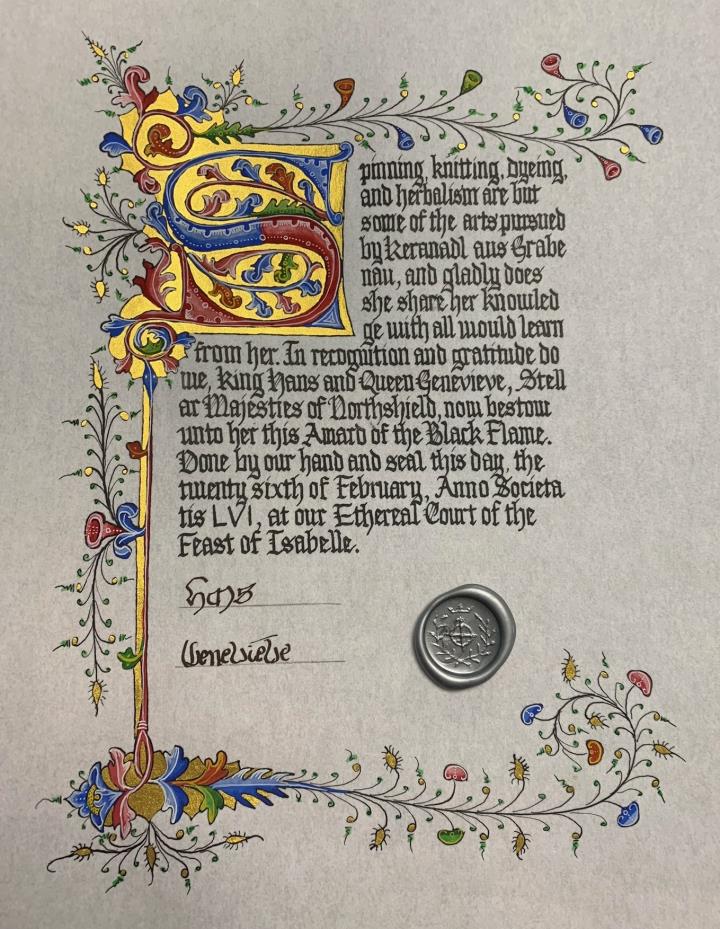 Spinning, knitting, dyeing,
and herbalism are but
some of the arts pursued
by Keranadl aus Grabe
nau, and gladly does
she share her knowled
ge with all would learn
from her. In recognition and gratitude do
we, King Hans and Queen Genevieve, Stell
ar Majesties of Northshield, now bestow
unto her this Award of the Black Flame.
Done by our hand and seal this day, the
twenty sixth of February, Anno Societa
tis LVI, at our Ethereal Court of the
Feast of Isabelle.
Hans
Genevieve